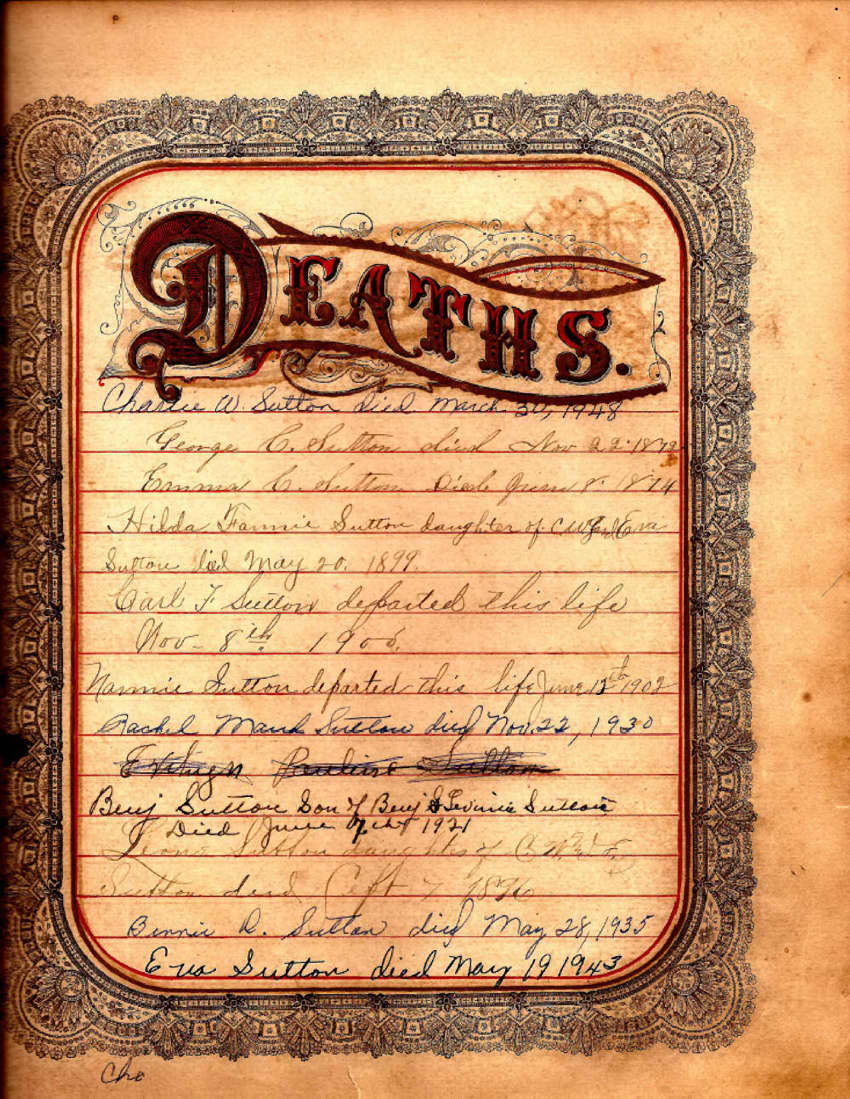 DEATHS.
Charlie W. Sutton died March 30, 1948
George C. Sutton died Nov 22. 1872
Emma C. Sutton Died June 8. 1874
Hilda Fannie Sutton daughter of C W and Eva
Sutton died May 20. 1899.
Carl F Sutton departed this life
Nov- 8th. 1906.
Nannie Sutton departed this life June 12th 1902
Rachel Maud Sutton died Nov. 22, 1930
Pauline Sutton
Benj Sutton Son of Benj & Levinie Sutton
Died June 1921
Leona Sutton daughter of C W & E
Sutton died Sept 7 1896
Bennie D. Sutton died May 28, 1935
Eva Sutton died May 19 1943
Cha